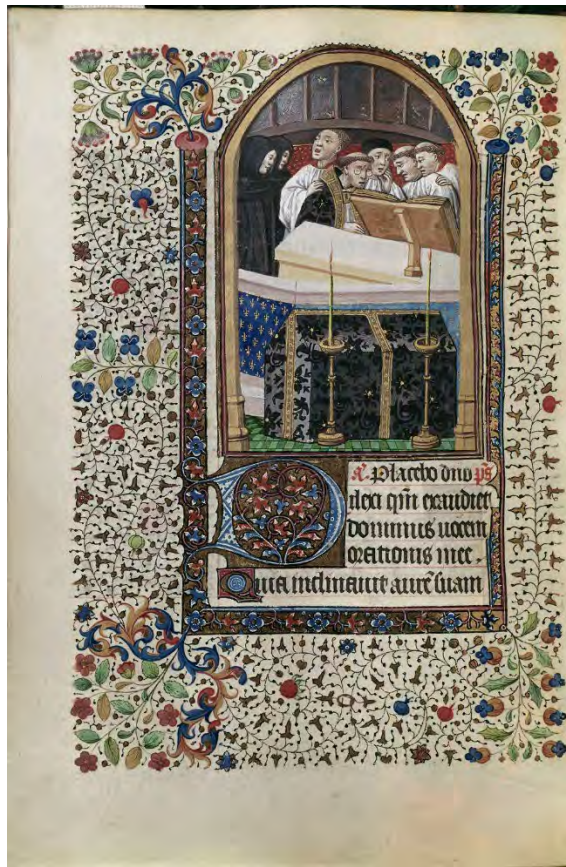 a. Placebo dn̄o ps
Dilexi qm̄ exaudiet
dominus uocem
orationis mee.
Quia inclinauit aurē suam